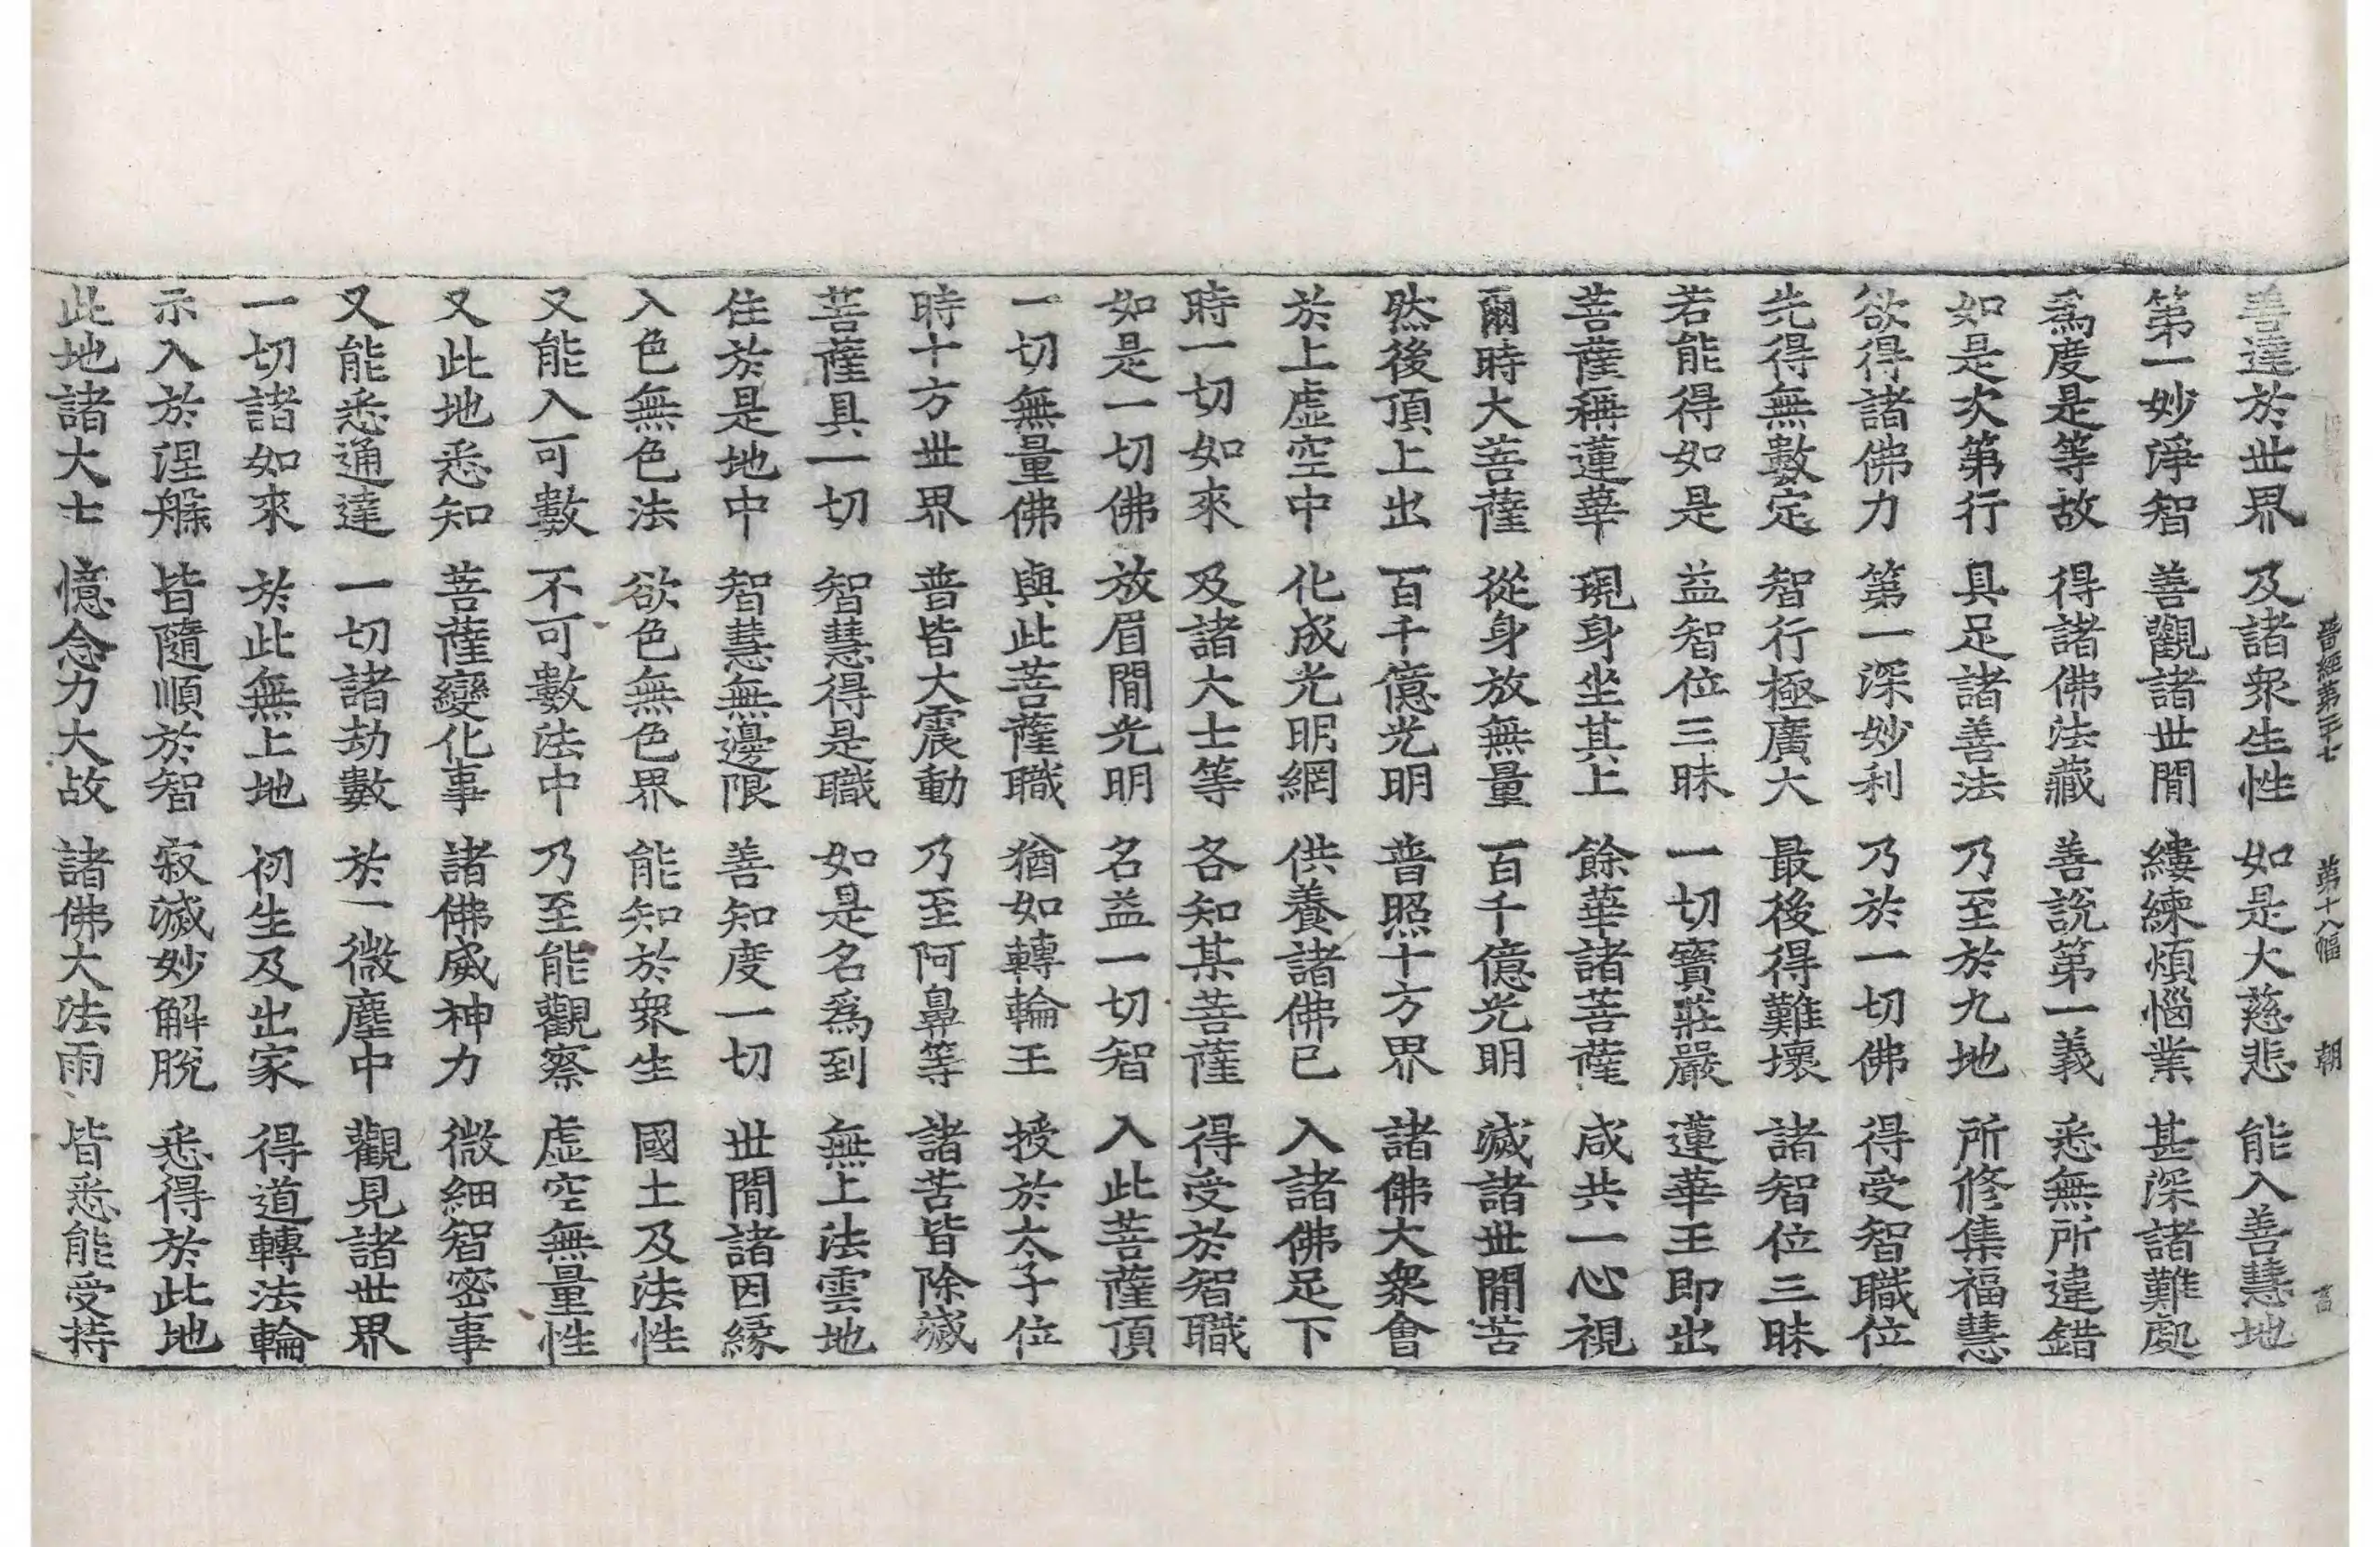 晉經第二十七 第十八幅 朝
善達於世界 及諸衆生性 如是大慈悲 能入善慧地
第一妙淨智 善觀諸世閒 縷練煩惱業 甚深諸難處
爲度是等故 得諸佛法藏 善說第一義 悉無所違錯
如是次第行 具足諸善法 乃至於九地 所修集福慧
欲得諸佛力 第一深妙利 乃於一切佛 得受智職位
先得無數定 智行極廣大 最後得難壞 諸智位三昧
若能得如是 益智位三昧 一切寶莊嚴 蓮華王即出
菩薩稱蓮華 現身坐其上 餘華諸菩薩 咸共一心視
爾時大菩薩 從身放無量 百千億光明 滅諸世閒苦
然後頂上出 百千億光明 普照十方界 諸佛大衆會
於上虛空中 化成光明網 供養諸佛已 入諸佛足下
時一切如來 及諸大士等 各知某菩薩 得受於智職
如是一切佛 放眉閒光明 名益一切智 入此菩薩頂
一切無量佛 與此菩薩職 猶如轉輪王 授於太子位
時十方世界 普皆大震動 乃至阿鼻等 諸苦皆除滅
菩薩具一切 智慧得是職 如是名爲到 無上法雲地
住於是地中 智慧無邊限 善知度一切 世閒諸因緣
入色無色法 欲色無色界 能知於衆生 國土及法性
又能入可數 不可數法中 乃至能觀察 虛空無量性
又此地悉知 菩薩變化事 諸佛威神力 微細智密事
又能悉通達 一切諸劫數 於一微塵中 觀見諸世界
一切諸如來 於此無上地 初生及出家 得道轉法輪
示入於涅槃 皆隨順於智 寂滅妙解脫 悉得於此地
此地諸大士 憶念力大故 諸佛大法雨 皆悉能受持